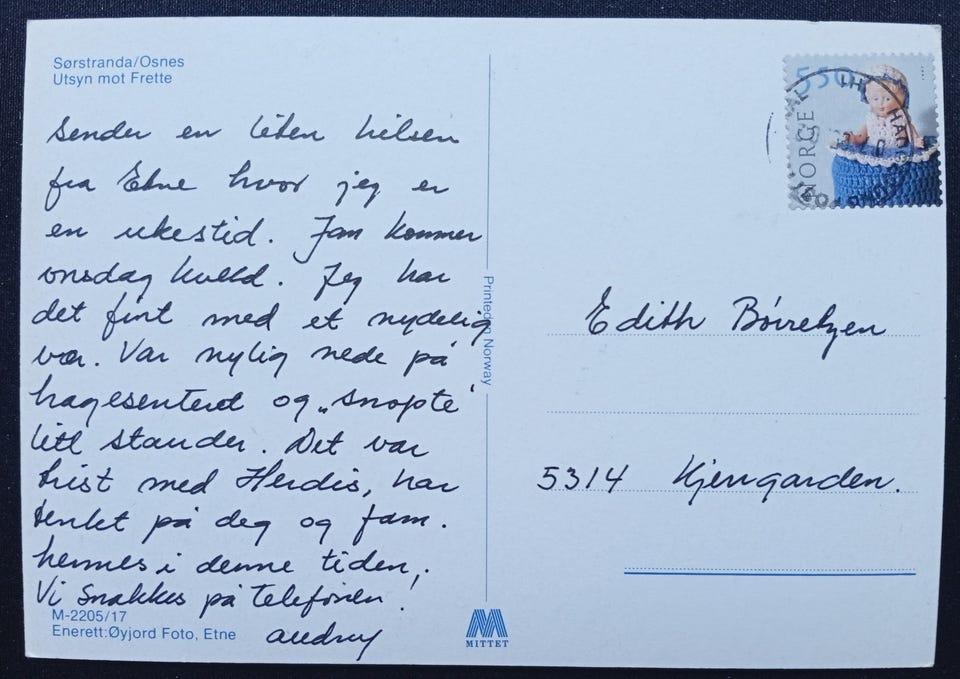 Sørstranda/Osnes
Utsyn mot Frette
Sender en liten hilsen
fra Etne hvor jeg er
en ukestid. Jan kommer
onsdag kveld. Jeg har
det fint med et nydelig
vær. Var nylig nede på
hagesenteret og "snopte"
litt stauder. Det var
trist med Herdis, har
tenkt på deg og fam.
hennes i denne tiden,
Vi snakkes på telefonen!
Audny
M-2205/17
Enerett: Øyjord Foto, Etne
Printed in Norway
MITTET
550
NORGE
Edith
5314 Kjerrgarden.